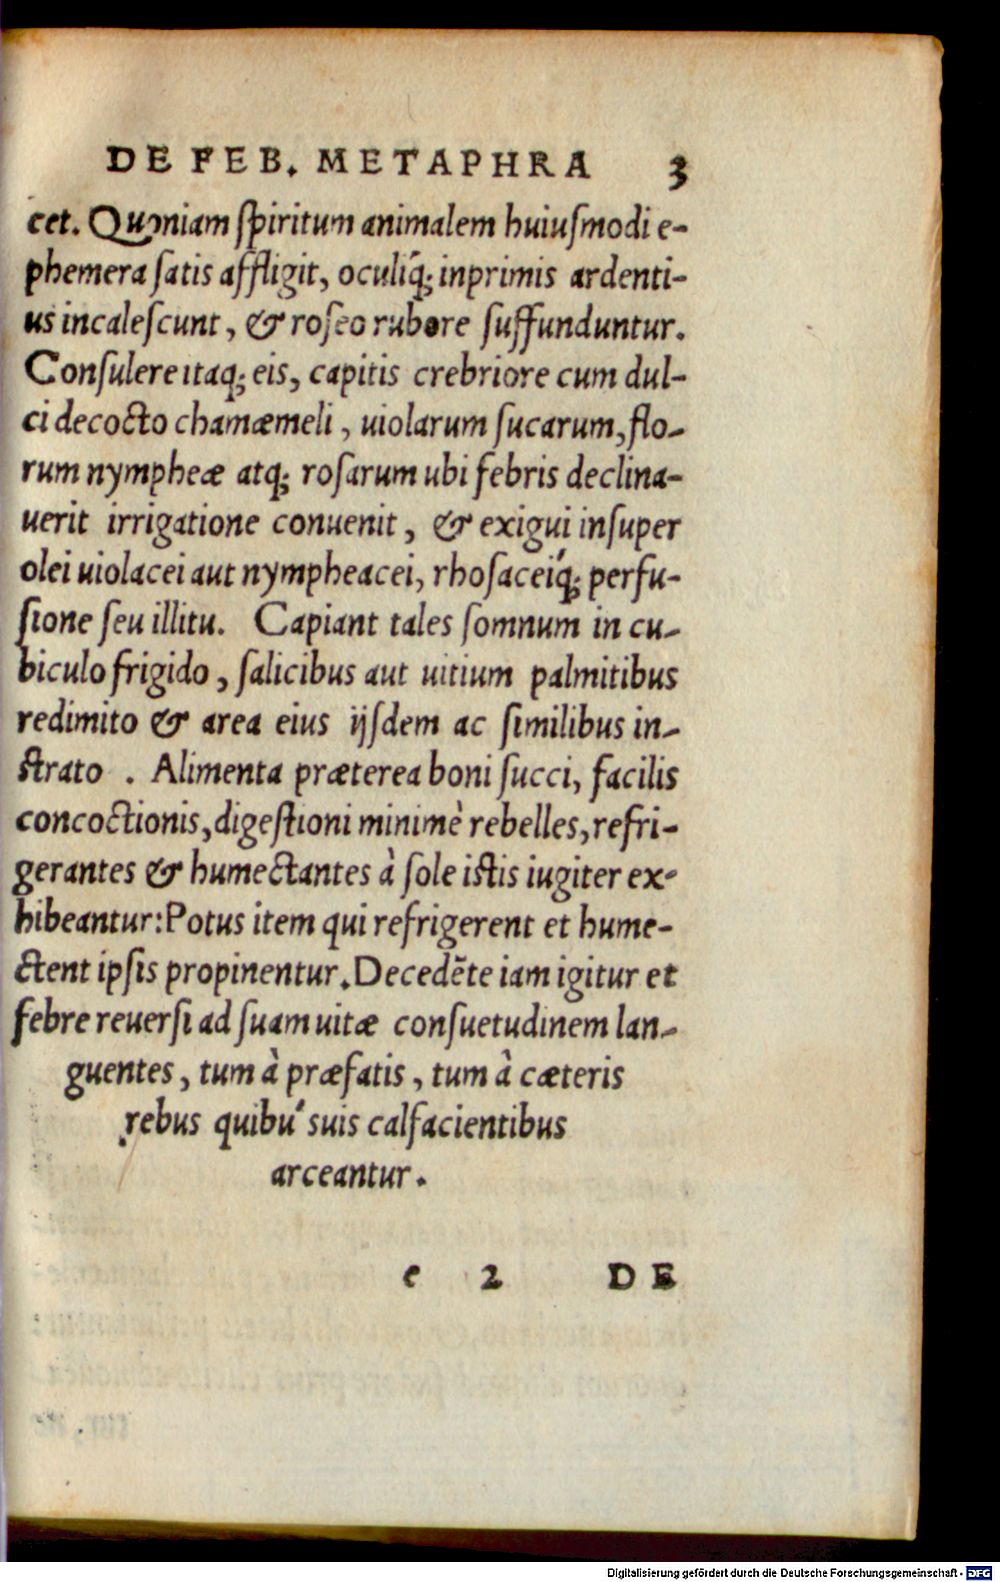 DE FEB. METAPHRA 3
cet. Quoniam ſpiritum animalem huiuſmodi e-
phemera ſatis affligit, oculiq́; inprimis ardenti-
us incaleſcunt, & roſeo rubore ſuffunduntur.
Conſulere itaq; eis, capitis crebriore cum dul-
ci decocto chamæmeli, uiolarum ſucarum, flo-
rum nympheæ atq; roſarum ubi febris declina-
uerit irrigatione conuenit, & exigui inſuper
olei uiolacei aut nympheacei, rhoſaceiq́; perfu-
ſione ſeu illitu. Capiant tales ſomnum in cu-
biculo frigido, ſalicibus aut uitium palmitibus
redimito & area eius ijſdem ac ſimilibus in-
ſtrato . Alimenta præterea boni ſucci, facilis
concoctionis, digeſtioni minimè rebelles, refri-
gerantes & humectantes à ſole iſtis iugiter ex-
hibeantur: Potus item qui refrigerent et hume-
ctent ipſis propinentur. Decedēte iam igitur et
febre reuerſi ad ſuam uitæ conſuetudinem lan-
guentes, tum à præfatis, tum à cæteris
rebus quibuʹ suis calfacientibus
arceantur.
e 2 DE
Digitalisierung gefördert durch die Deutsche Forschungsgemeinschaft - DFG